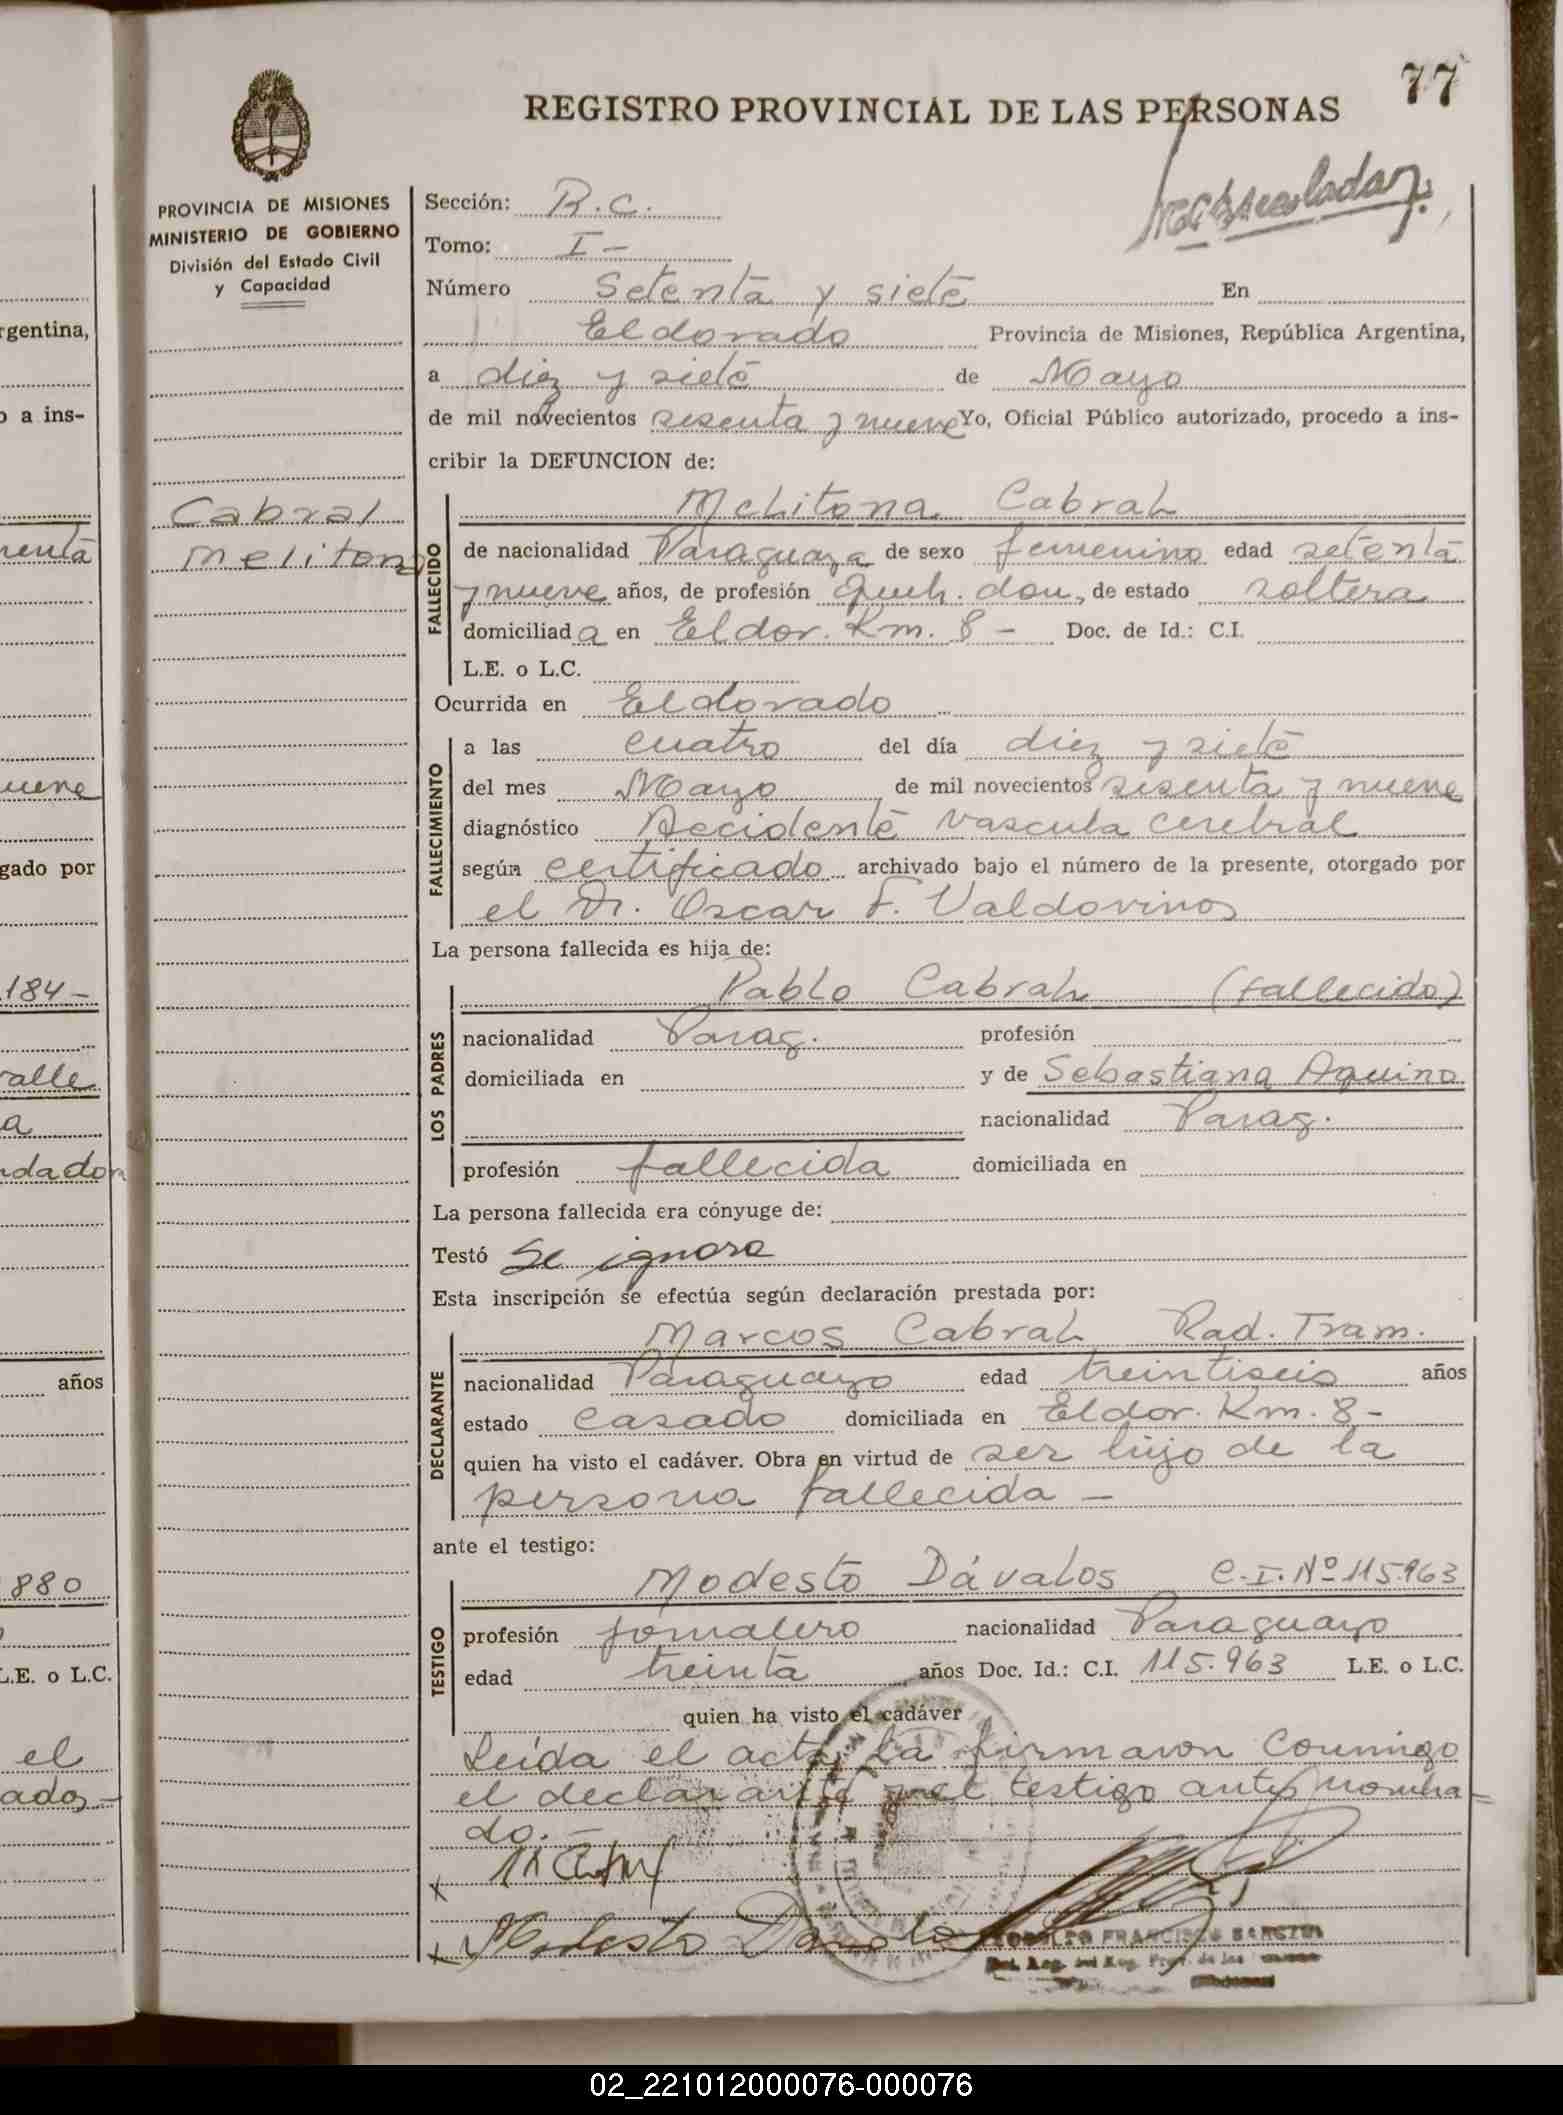 77
REGISTRO PROVINCIAL DE LAS PERSONAS
PROVINCIA DE MISIONES
MINISTERIO DE GOBIERNO
División del Estado Civil
y Capacidad
Cabral
Melitona
Sección: R.C.
Tomo: I -
Número Setenta y siete En
Eldorado Provincia de Misiones, República Argentina,
a diez y siete de Mayo
de mil novecientos sesenta y nueve Yo, Oficial Público autorizado, procedo a ins-
cribir la DEFUNCION de:
FALLECIDO
Melitona Cabral
de nacionalidad Paraguaya de sexo femenino edad setenta
y nueve años, de profesión Queh. dom, de estado soltera
domiciliada en Eldor. Km. 8 - Doc. de Id.: C.I.
L.E. o L.C.
Ocurrida en Eldorado
FALLECIMIENTO
a las cuatro del día diez y siete
del mes Mayo de mil novecientos sesenta y nueve
diagnóstico Accidente vascula cerebral
según certificado archivado bajo el número de la presente, otorgado por
el Dr. Oscar F. Valdovinos
La persona fallecida es hija de:
LOS PADRES
Pablo Cabral (fallecido)
nacionalidad Parag. profesión
domiciliada en y de Sebastiana Aquino
nacionalidad Parag.
profesión fallecida domiciliada en
La persona fallecida era cónyuge de:
Testó Se ignora
Esta inscripción se efectúa según declaración prestada por:
DECLARANTE
Marcos Cabral Rad. Tram.
nacionalidad Paraguayo edad treintiseis años
estado casado domiciliada en Eldor. Km. 8 -
quien ha visto el cadáver. Obra en virtud de ser hijo de la
persona fallecida -
ante el testigo:
TESTIGO
Modesto Dávalos C.I. Nº 115.963
profesión jornalero nacionalidad Paraguayo
edad treinta años Doc. Id.: C.I. 115.963 L.E. o L.C.
quien ha visto el cadáver
Leída el acta, la firmaron conmigo
el declarante y el testigo antes nombra=
do. -
x M Cabral
x Modesto Davalos
FRANCISCO
rgentina,
o a ins-
gado por
184-
valle
a
años
880
L.E. o L.C.
el
02_221012000076-000076